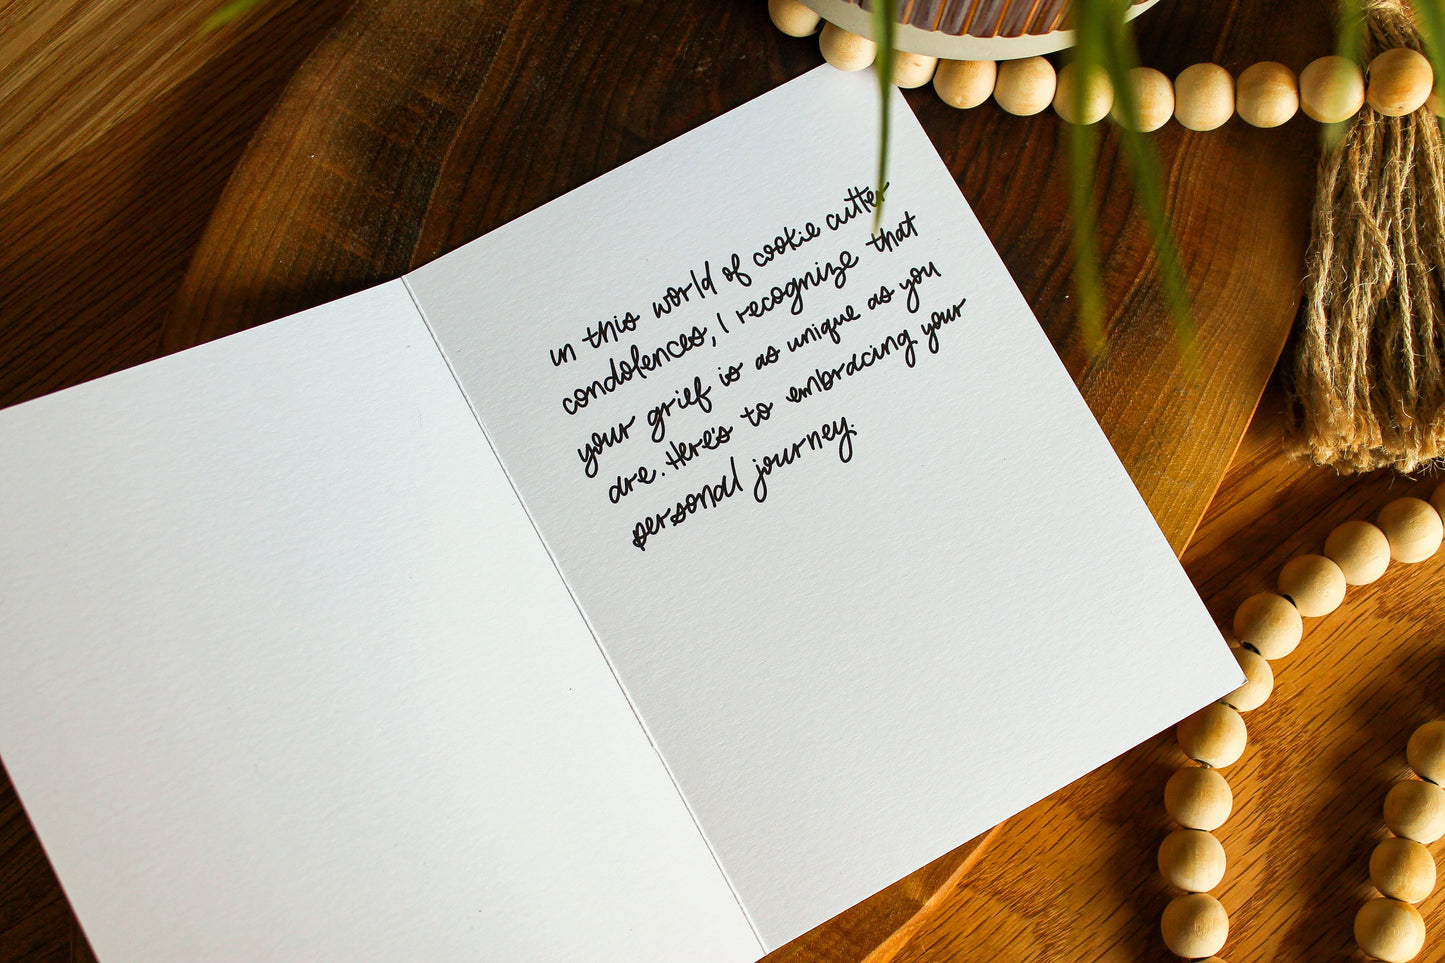 in this world of cookie cutter
condolences, I recognize that
your grief is as unique as you
are. Here's to embracing your
personal journey.